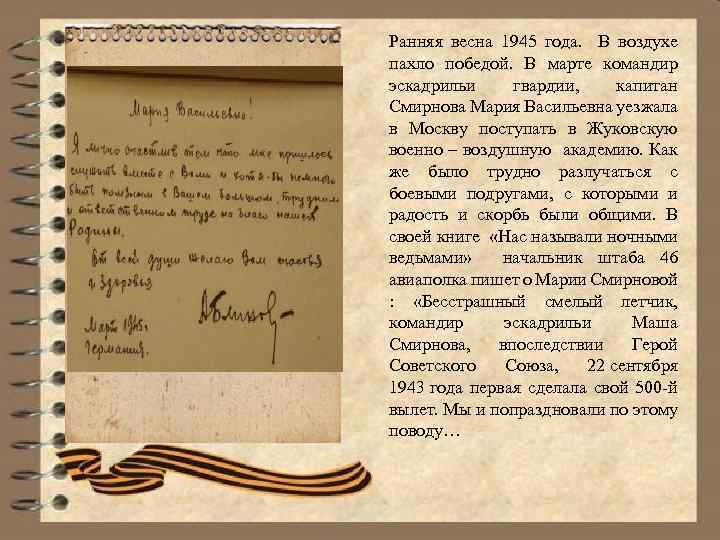 Мария Васильевна!
Я лично счастлив тем что мне пришлось
служить вместе с Вами и хотя-бы немного
быть полезным в Вашем большом, трудном
и ответственном труде на благо нашей
Родины.
От всей души желаю Вам счастья
и здоровья
Март 1945г
Германия.
Ранняя весна 1945 года. В воздухе
пахло победой. В марте командир
эскадрильи гвардии, капитан
Смирнова Мария Васильевна уезжала
в Москву поступать в Жуковскую
военно – воздушную академию. Как
же было трудно разлучаться с
боевыми подругами, с которыми и
радость и скорбь были общими. В
своей книге «Нас называли ночными
ведьмами» начальник штаба 46
авиаполка пишет о Марии Смирновой
: «Бесстрашный смелый летчик,
командир эскадрильи Маша
Смирнова, впоследствии Герой
Советского Союза, 22 сентября
1943 года первая сделала свой 500-й
вылет. Мы и попраздновали по этому
поводу…